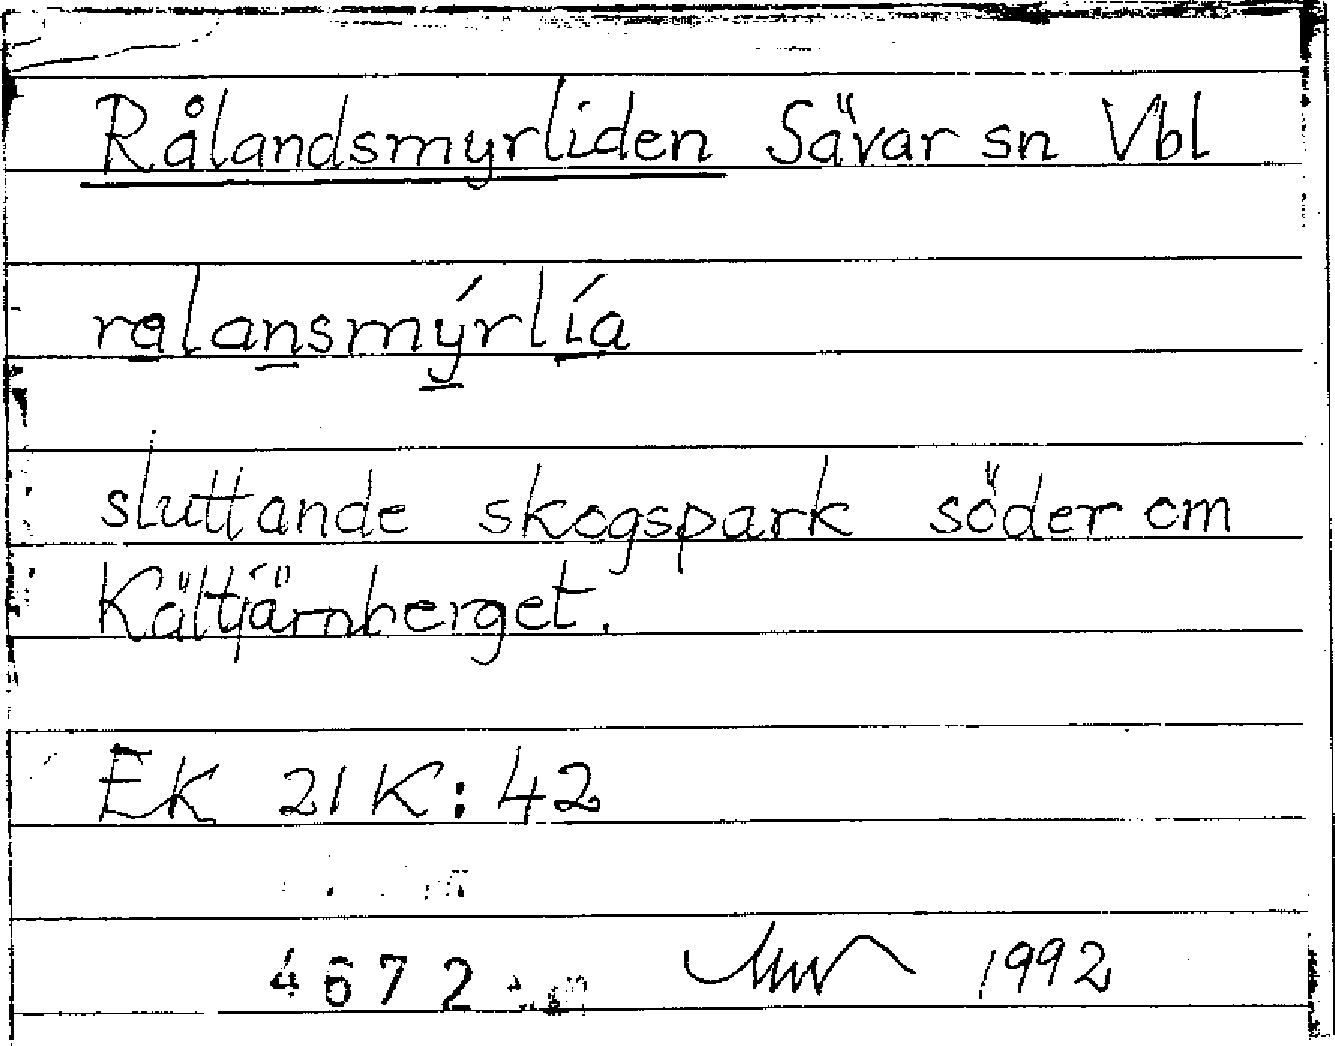 Rålandsmyrliden Sävar sn Vbl
ralansmýrlía
sluttande skogspark söder om
Kältjärnberget.
EK 21K:42
4672
1992